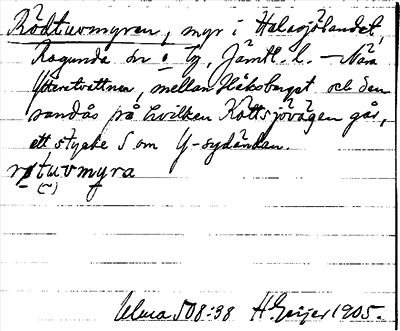 Rödtuvmyren, myr i Halasjölandet,
Ragunda sn o tg, Jämtl. l. – Nära
Ytteretvattnen, mellan Håksberget och den
sandås på hvilken Köttsjövägen går,
ett stycke S om Y-sydändan.
tuvmyra
(~)
Ulma 508:38 H. Geijer 1905.